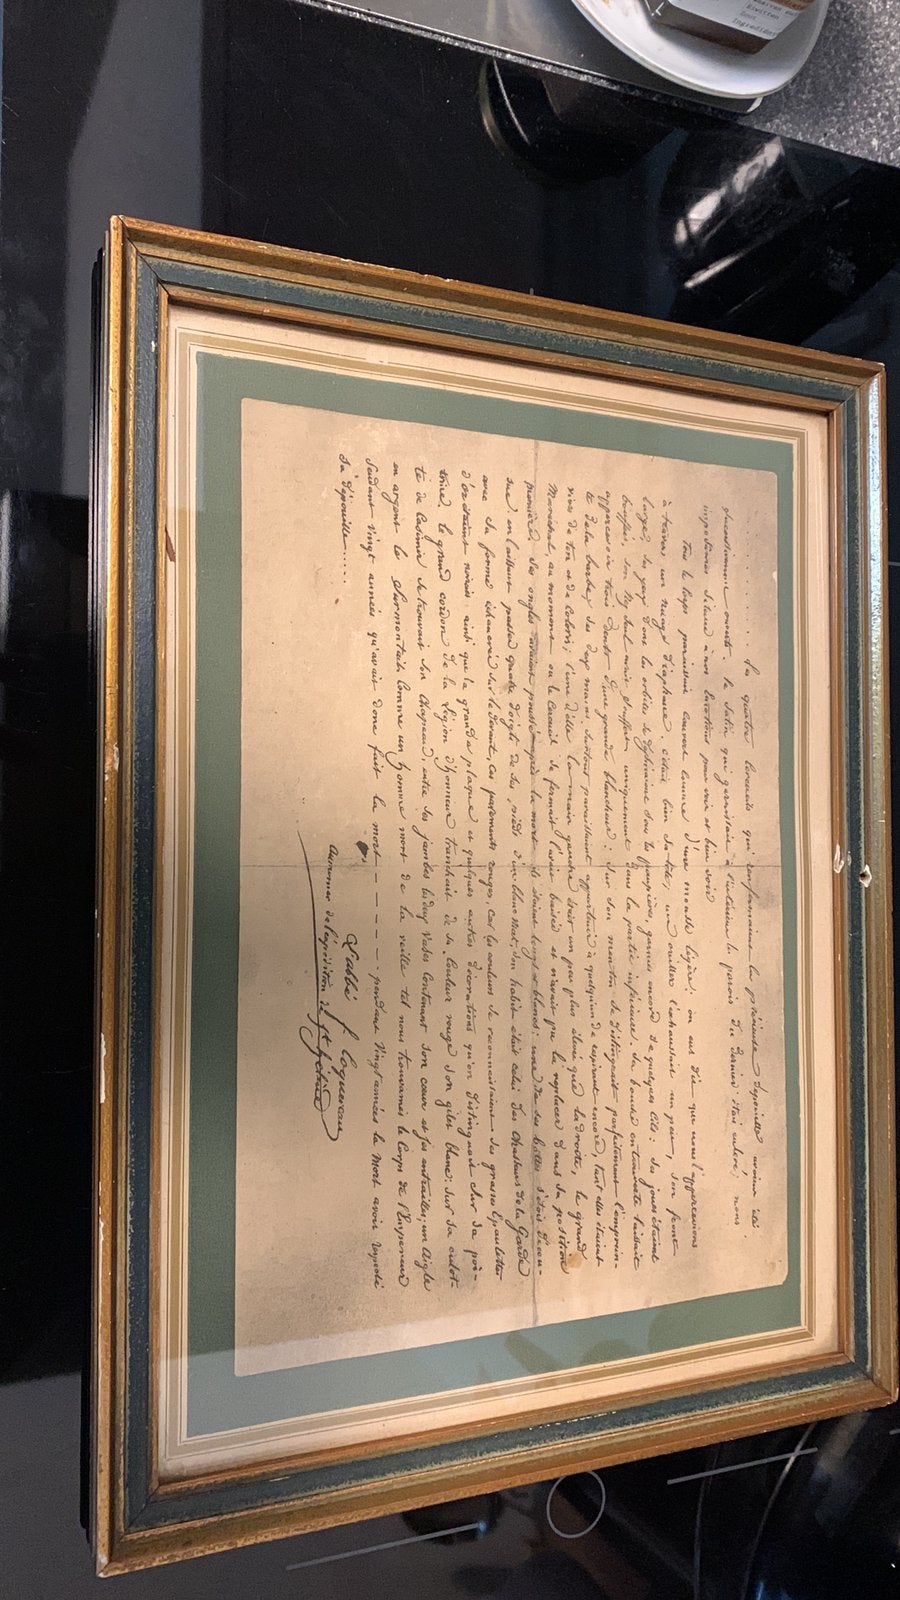 . . . . . . . . Les quatre cercueils qui renfermaient la précieuse dépouille avaient été
successivement ouverts. le satin qui garnissait à l'intérieur les parois du dernier était enlevé; nous
imposâmes silence à nos émotions pour voir et bien voir
Tout le corps paraissait couvert comme d'une mousse légère; on eut dit que nous l'appercevions
à travers un nuage diaphane. c'était bien sa tête, un oreiller l'exhaussait un peu, son front
large, ses yeux dont les orbites se dessinaient sous les paupières, garnies encore de quelques cils: ses joues étaient
bouffies, son nez seul avait souffert uniquement dans la partie inférieure. sa bouche entrouverte laissait
appercevoir trois dents d'une grande blancheur: sur son menton se distinguait parfaitement l'emprein-
te de la barbe; ses deux mains surtout paraissaient appartenir à quelqu'un de respirant encore, tant elles étaient
vives de ton et de coloris; l'une d'elle la main gauche était un peu plus élevée que la droite, le grand
Maréchal, au moment où le Cercueil se fermait l'avait baisée et n'avait pu la replacer dans sa position
première. Ses ongles avaient poussé après la mort ils étaient longs et blancs: une de ses bottes s'était décou-
sue en laissant passer quatre doigts de ses pieds d'un blanc mat; son habit était celui des chasseurs de la Garde
avec sa forme échancrée sur le devant, ces parements rouges, car les couleurs se reconnaissaient ses grosses Epaulettes
d'or étaient noircies ainsi que la grande plaque et quelques autres décorations qu'on distinguait sur sa poi-
trine. le grand cordon de la Légion d'honneur tranchait de sa couleur rouge son gilet blanc; sur sa culot-
te de Casimir se trouvait son Chapeau, entre ses jambes les deux vases contenant son cœur et ses entrailles; un Aigle
en argent les Surmontait. Comme un homme mort de la veille tel nous trouvames le Corps de l'Empereur
Pendant vingt années qu'avait donc fait la mort — — — — - pendant vingt années la Mort avait respecté
sa dépouille. . . . .
L'abbé F Coquereau
aumonier de l'expédition de Ste hélène